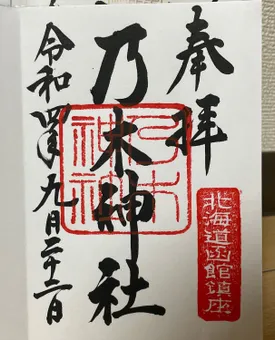 奉拝
北海道函館鎮座
乃木神社
乃木
神社
令和四年九月二十二日